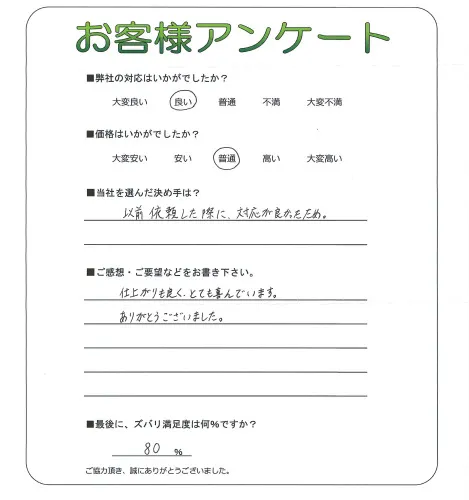 お客様アンケート
■弊社の対応はいかがでしたか？
大変良い 良い 普通 不満 大変不満
■価格はいかがでしたか？
大変安い 安い 普通 高い 大変高い
■当社を選んだ決め手は？
以前依頼した際に、対応が良かったため。
■ご感想・ご要望などをお書き下さい。
仕上がりも良く、とても喜んでいます。
ありがとうございました。
■最後に、ズバリ満足度は何％ですか？
80 %
ご協力頂き、誠にありがとうございました。